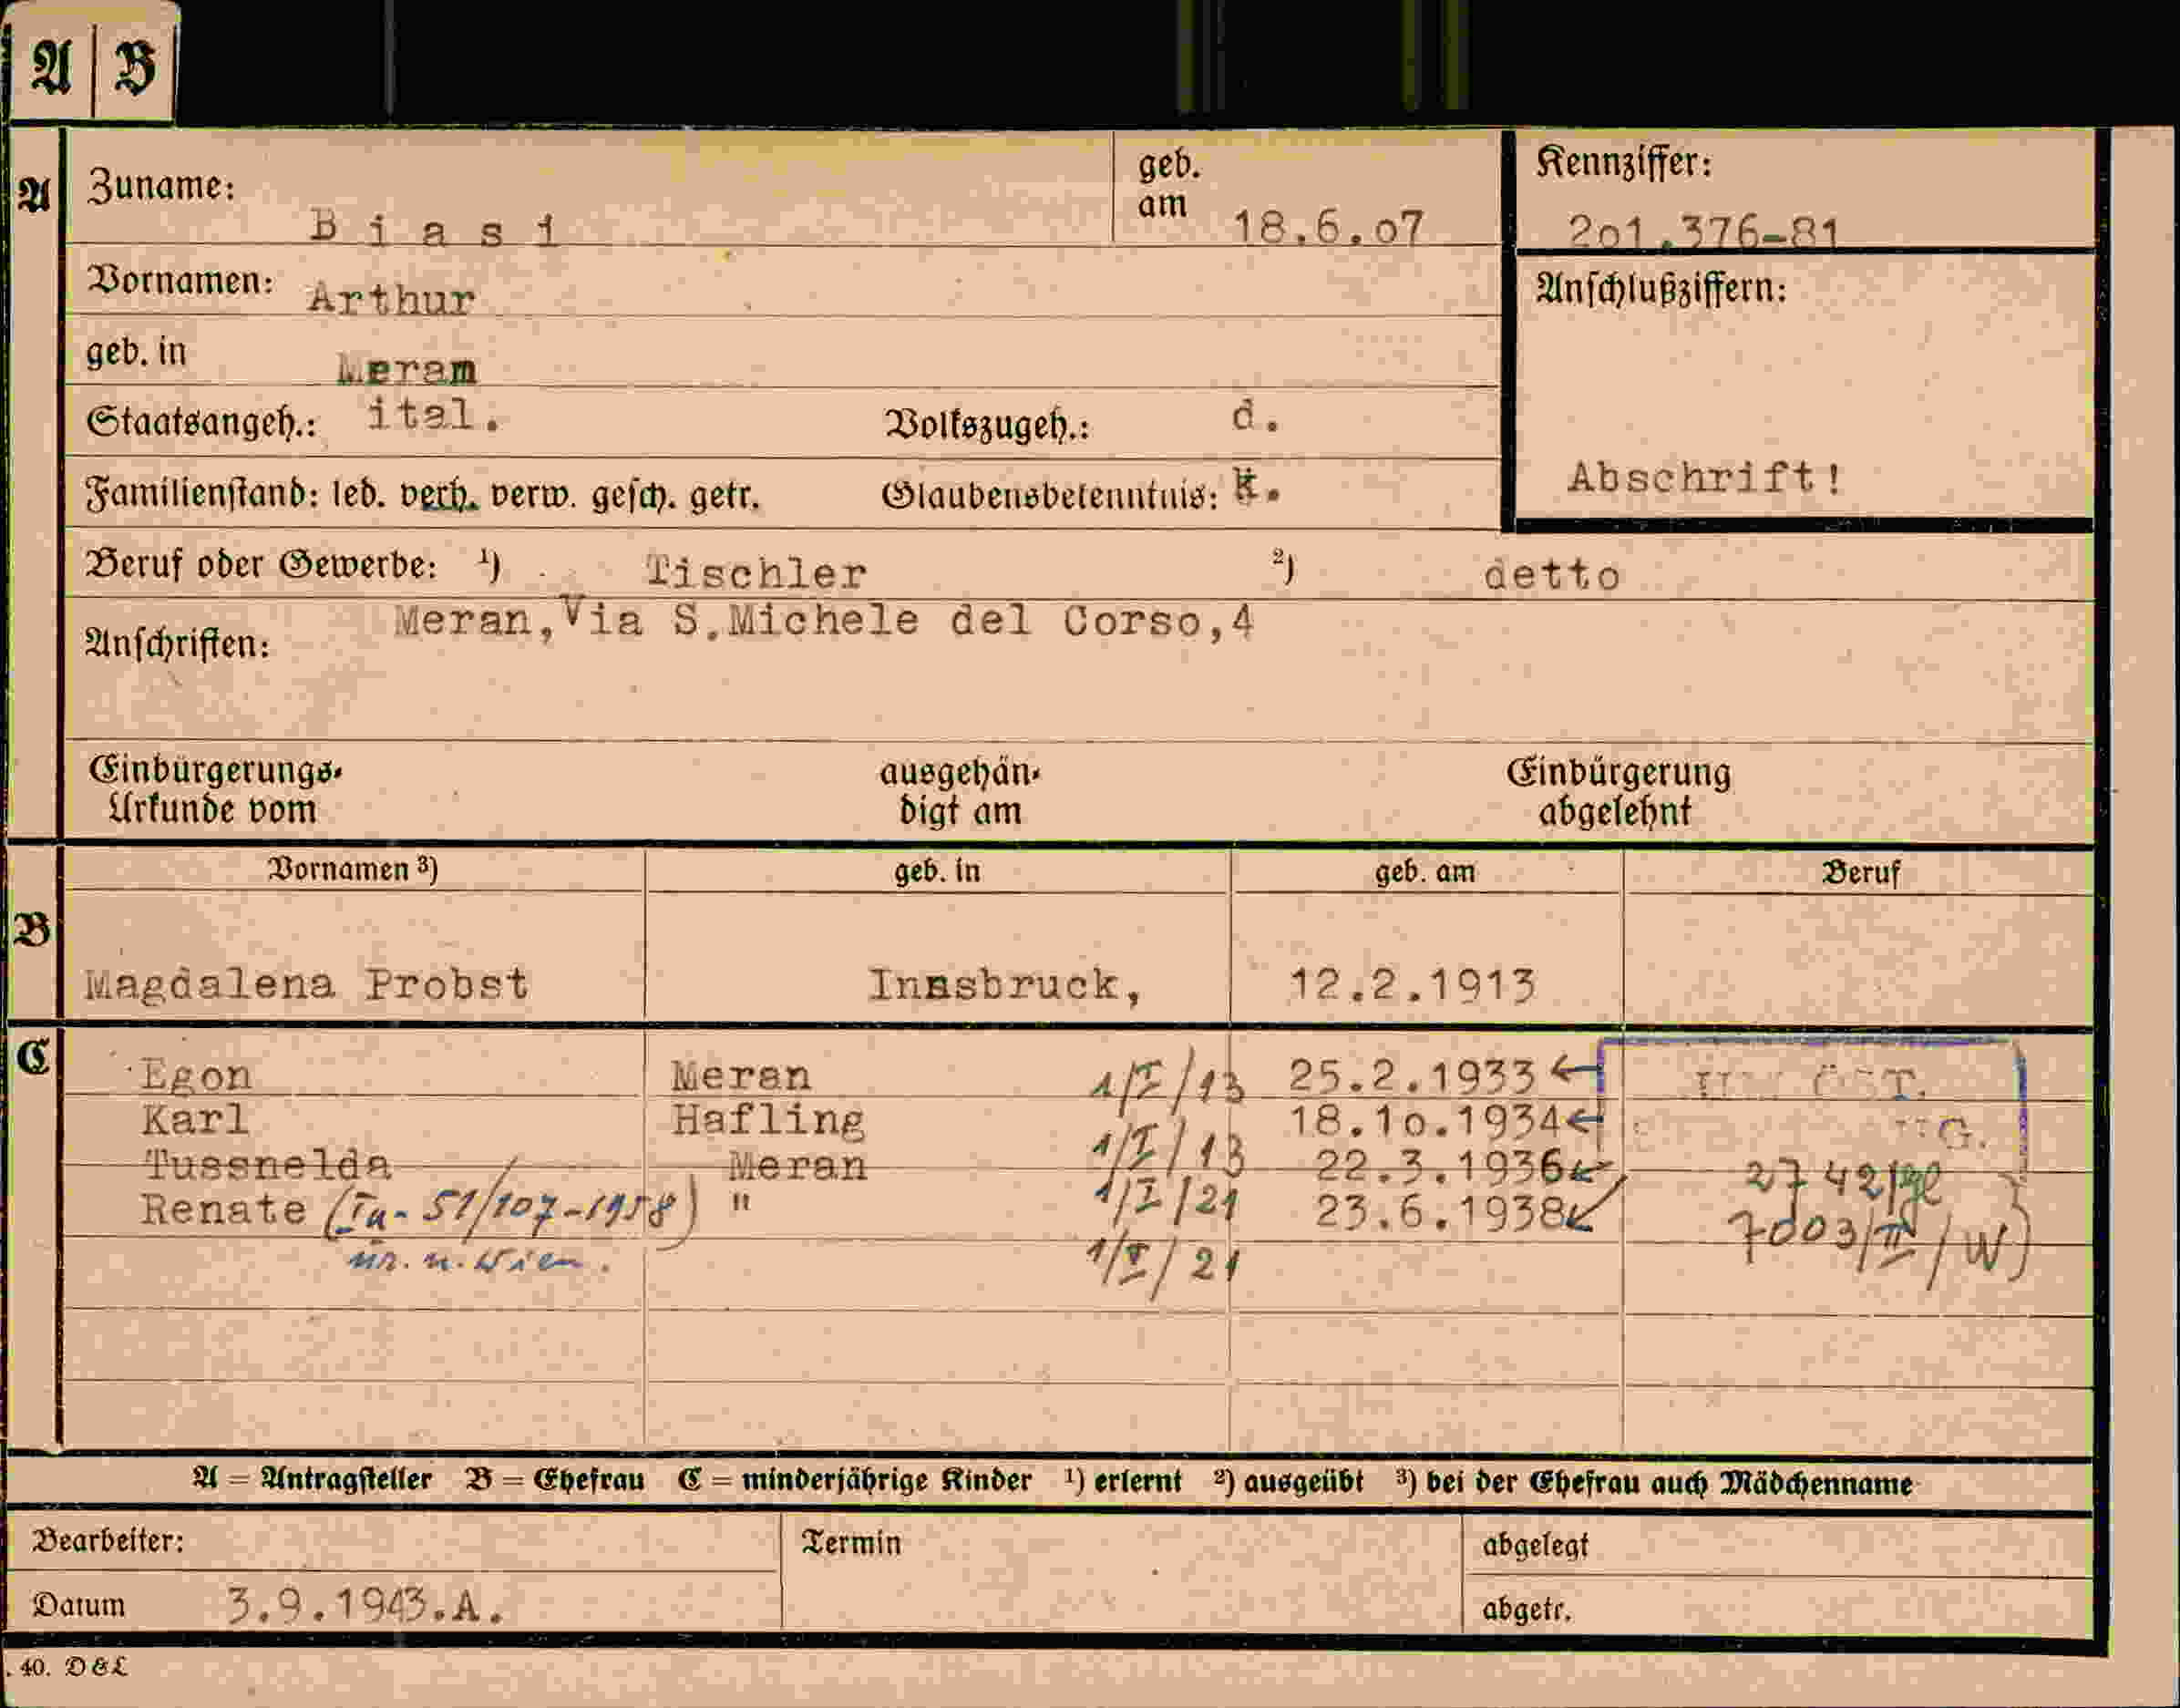 A | B
A
Zuname: Biasi geb. am 18.6.o7 Kennziffer: 2o1.376-81
Vornamen: Arthur Anschlußziffern:
geb. in Meram
Staatsangeh.: ital. Volkszugeh.: d.
Familienstand: led. verh. verw. gesch. getr. Glaubensbekenntnis: k. Abschrift!
Beruf oder Gewerbe: ¹) Tischler ²) detto
Anschriften: Meran,Via S.Michele del Corso,4
Einbürgerungs- ausgehän- Einbürgerung
Urkunde vom digt am abgelehnt
Vornamen ³) geb. in geb. am Beruf
B
Magdalena Probst Innsbruck, 12.2.1913
C
Egon Meran 1/I/13 25.2.1933
Karl Hafling 1/I/13 18.1o.1934
Tussnelda Meran 1/I/21 22.3.1936
Renate (Ia-51/107-1958) " 1/I/21 23.6.1938 7003/III/W)
n. Wien.
A = Antragsteller B = Ehefrau C = minderjährige Kinder ¹) erlernt ²) ausgeübt ³) bei der Ehefrau auch Mädchenname
Bearbeiter: Termin abgelegt
Datum 3.9.1943.A. abgetr.
. 40. D & L